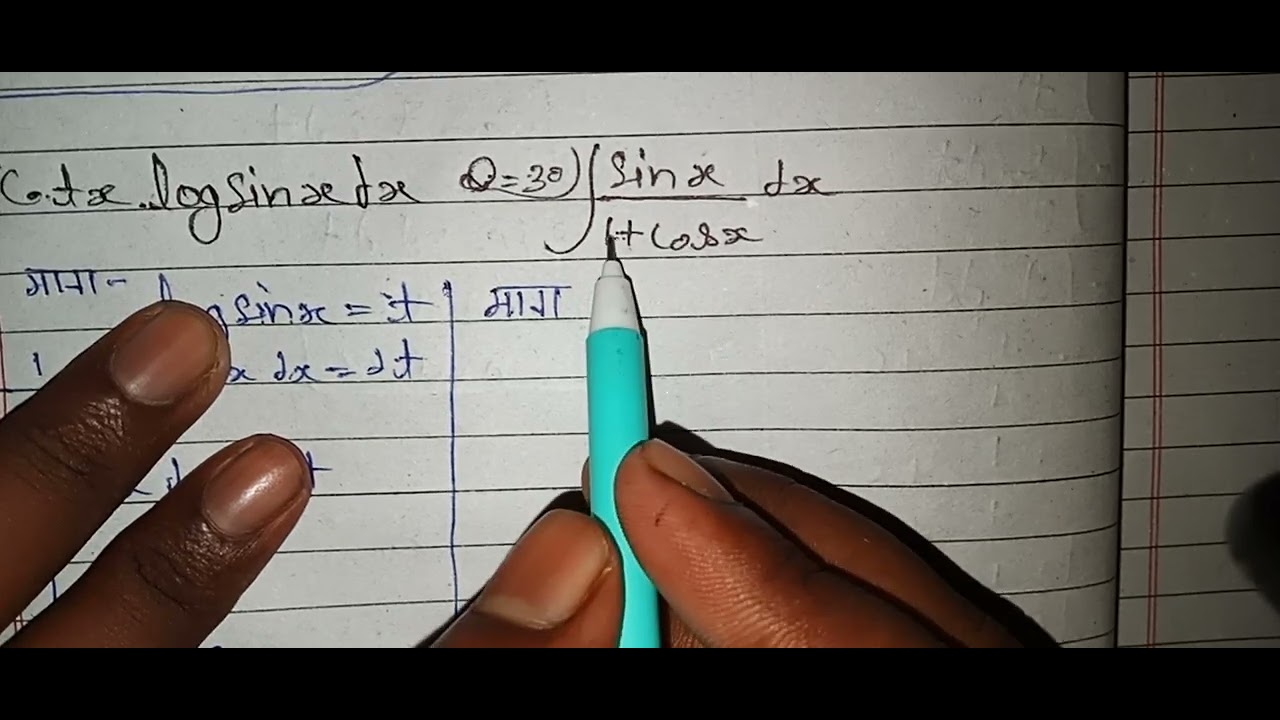 Cotx.logsinx dx Q=30) ∫ sinx/1+cosx dx
माना- log sinx = t | माना
1 x dx = dt